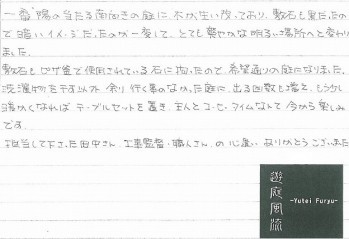 一番陽の当たる南向きの庭に、木が生い茂っており、敷石も黒だったの
で暗いイメージだったのが一変して、とても華やかな明るい場所へと変わり
ました。
敷石もピザ釜で使用されている石に拘ったので、希望通りの庭になりました。
洗濯物を干す以外余り行く事のなかった庭に、出る回数も増え、もう少し
暖かくなればテーブルセットを置き、主人とコーヒータイムなんて今から楽しみ
です。
担当して下さった田中さん、工事監督・職人さん、の心遣いありがとうございました
遊庭風流
-Yutei Furyu-